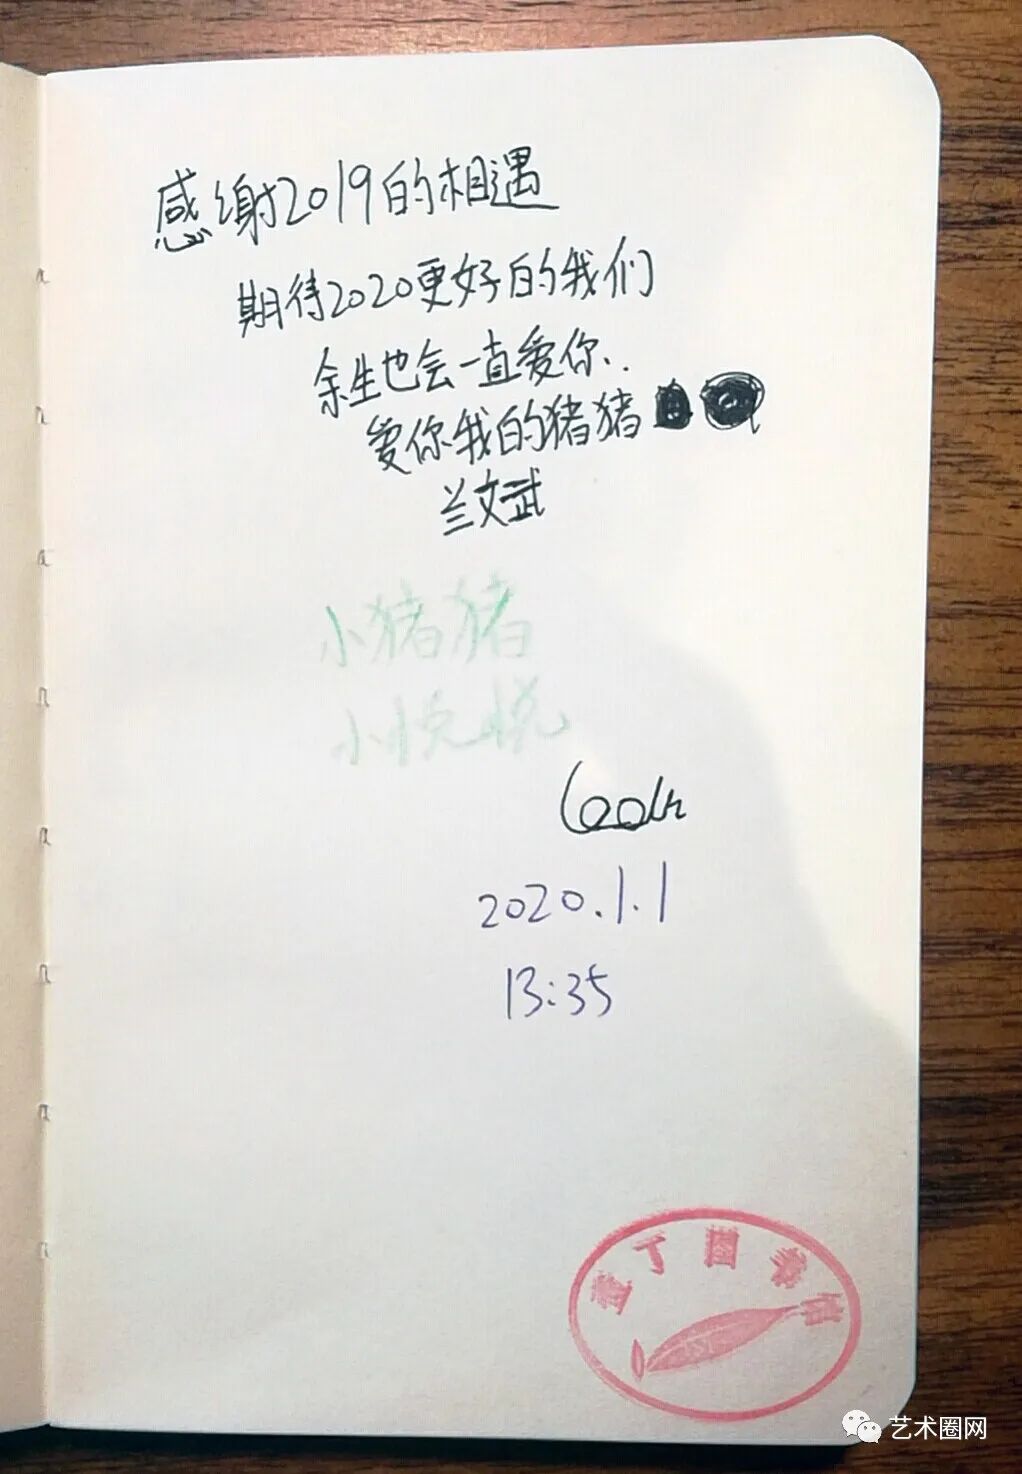 感谢2019的相遇
期待2020更好的我们
余生也会一直爱你..
爱你我的猪猪
兰文武
小猪猪
小悦悦
2020.1.1
13:35
艺术圈网